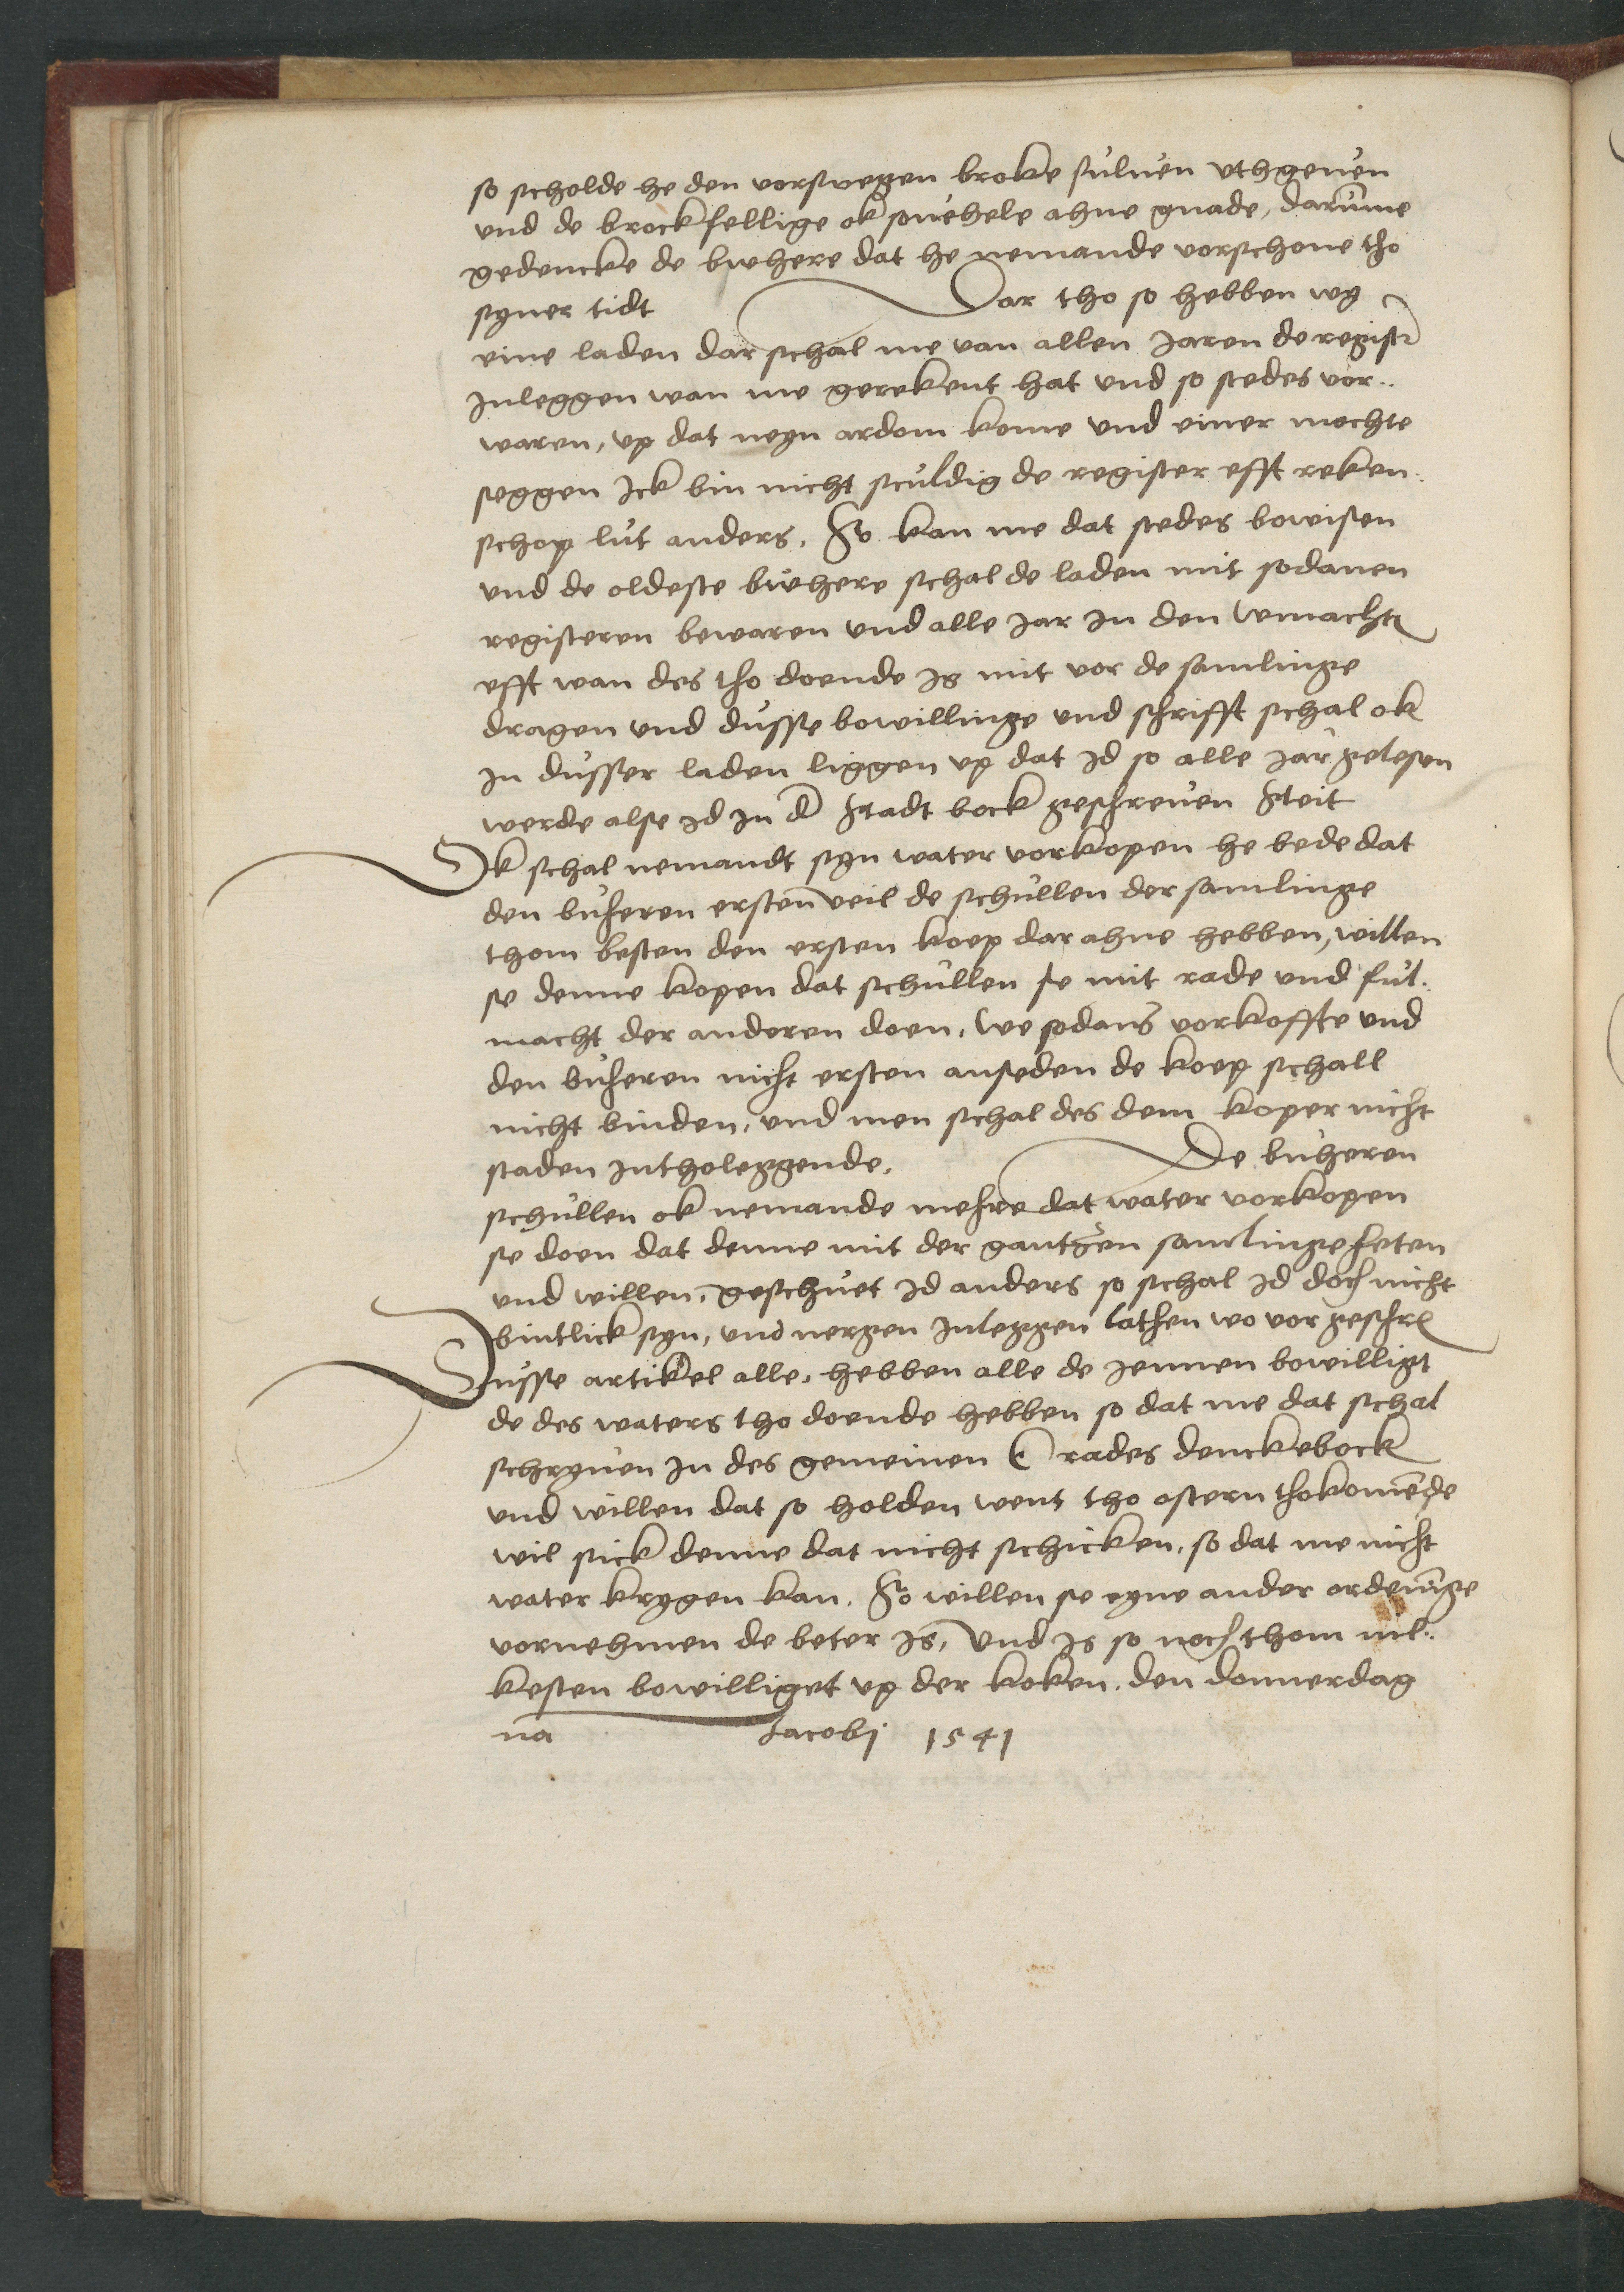 so scholde he den vorswegen broke sulven uthgeven
und de brockfellige ok sovehele ahne gnade, darumme
gedencke de bwhere dat he nemande vorschone tho
syner tidt Dar tho so hebben wy
eine laden dar schal me van allen Jaren de regist
Inleggen wan me gerekent hat und so stedes vor..
waren, up dat neyn ardom kome und einer mochte
seggen Ick bin nicht sculdig de register efft reken..
schop lut anders, So kan me dat stedes bowisen
und de oldeste bwhere schal de laden mit sodanen
registeren bewaren und alle Jar In den wmacht
efft wan des tho doende is mit vor de samlinge
dragen und dusse bowillinge und schrifft schal ok
In dusser laden liggen up dat Id so alle Jar gelesen
werde alse Id In d Stadt bock geschreven Steit
Ok schal nemandt syn water vorkopen he bede dat
den buheren ersten veil de schullen der samlinge
thom besten den ersten koep dar ahne hebben, willen
se denne kopen dat schullen se mit rade und ful..
macht der anderen doen, We sodans vorkoffte und
den buheren nicht ersten anseden de koep schall
nicht binden, und men schal des dem koper nicht
staden Intholeggende, De buheren
schullen ok nemande mehre dat water vorkopen
se doen dat denne mit der gantzen samlinge heten
und willen, geschuet Id anders so schal Id doch nicht
bintlick syn, und nergen Inleggen lathen wo vor geschr
Dusse artikel alle, hebben alle de Jennen bowilligt
de des waters tho doende hebben so dat me dat schal
schryven In des gemeinen E rades denckebock
und willen dat so holden went tho ostern thokomende
wil sick denne dat nicht schicken, so dat me nicht
water krygen kan, So willen se eyne ander ordeninge
vornehmen de beter is, Und is so noch thom nil..
kesten bowilliget up der koken, den donnerdag
na Jacobj 1541